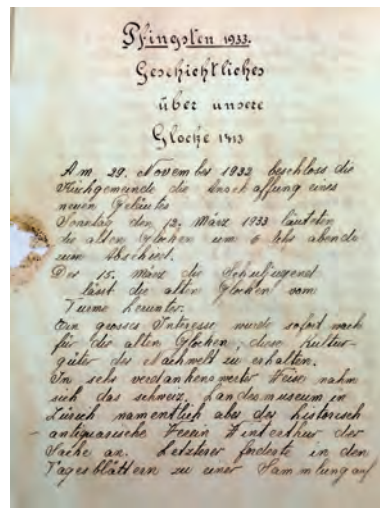 Pfingsten 1933.
Geschichtliches
über unsere
Glocke 1413
Am 29. November 1932 beschloss die
Kirchgemeinde die Anschaffung eines
neuen Geläutes
Sonntag den 12. März 1933 läuteten
die alten Glocken um 6 Uhr abends
zum Abschied.
Der 15. März die Schuljugend
lässt die alten Glocken vom
Turme herunter.
Ein grosses Interesse wurde sofort wach
für die alten Glocken; diese Kultur-
güter der Nachwelt zu erhalten.
In sehr verdankenswerter Weise nahm
sich das schweiz. Landesmuseum in
Zürich namentlich aber der historisch
antiquarische Verein Winterthur der
Sache an. Letzterer forderte in den
Tagesblättern zu einer Sammlung auf